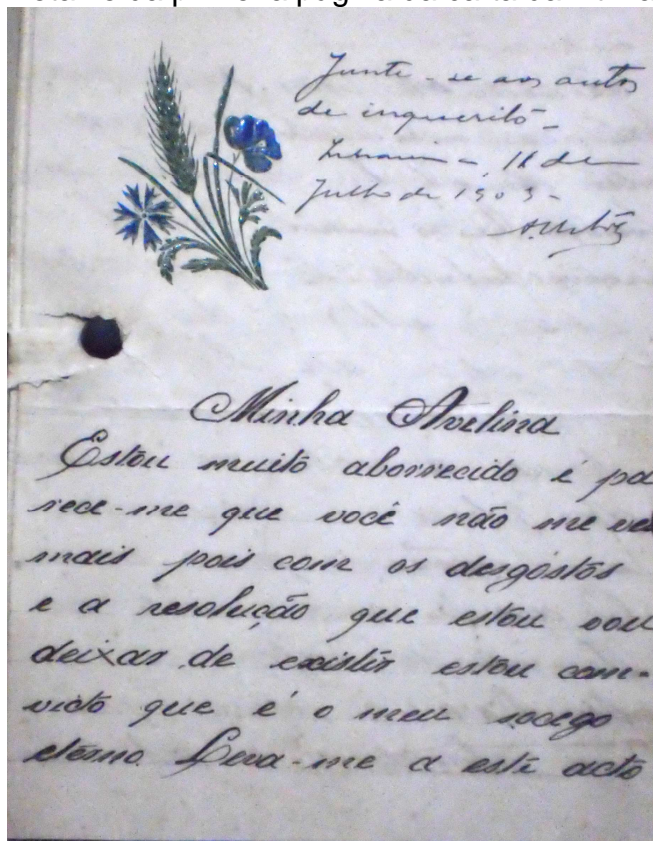 da primeira página da carta da
Junte-se aos autos
de inquerito -
11 de
Julho de 1903 -
Minha Avelina
Estou muito aborrecido é pa
rece-me que você não me ve
mais pois com os desgostos
e a resolução que estou vou
deixar de existir estou com-
victo que é o meu socego
eterno. Leva-me a este acto